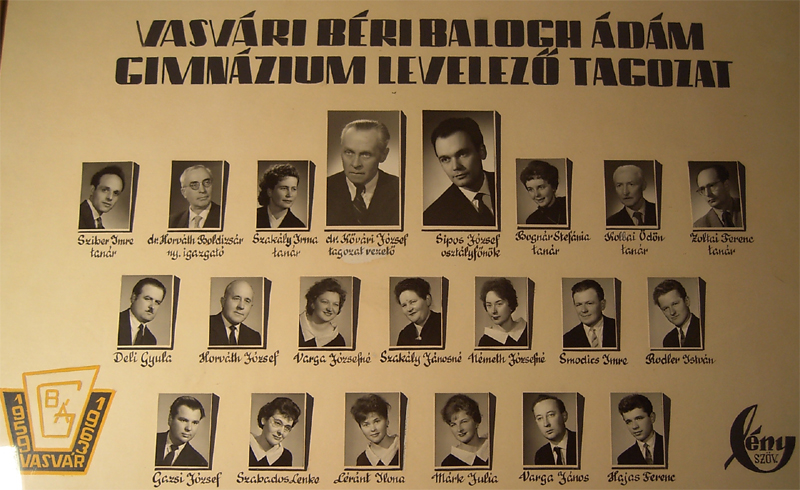 VASVÁRI BÉRI BALOGH ÁDÁM
GIMNÁZIUM LEVELEZŐ TAGOZAT
Sziber Imre
tanár
dr. Horváth Boldizsár
ny. igazgató
Szakály Irma
tanár
dr. Kővári József
tagozat vezető
Sipos József
osztályfőnök
Bognár Stefánia
tanár
Kolbai Ödön
tanár
Zoltai Ferenc
tanár
Deli Gyula
Horváth József
Varga Józsefné
Szakály Jánosné
Németh Józsefné
Smodics Imre
Rodler István
Gazsi József
Szabados Lenke
Léránt Ilona
Márk Julia
Varga János
Hajas Ferenc
1959
BÁG
1963
VASVÁR
Fény
SZÖV.